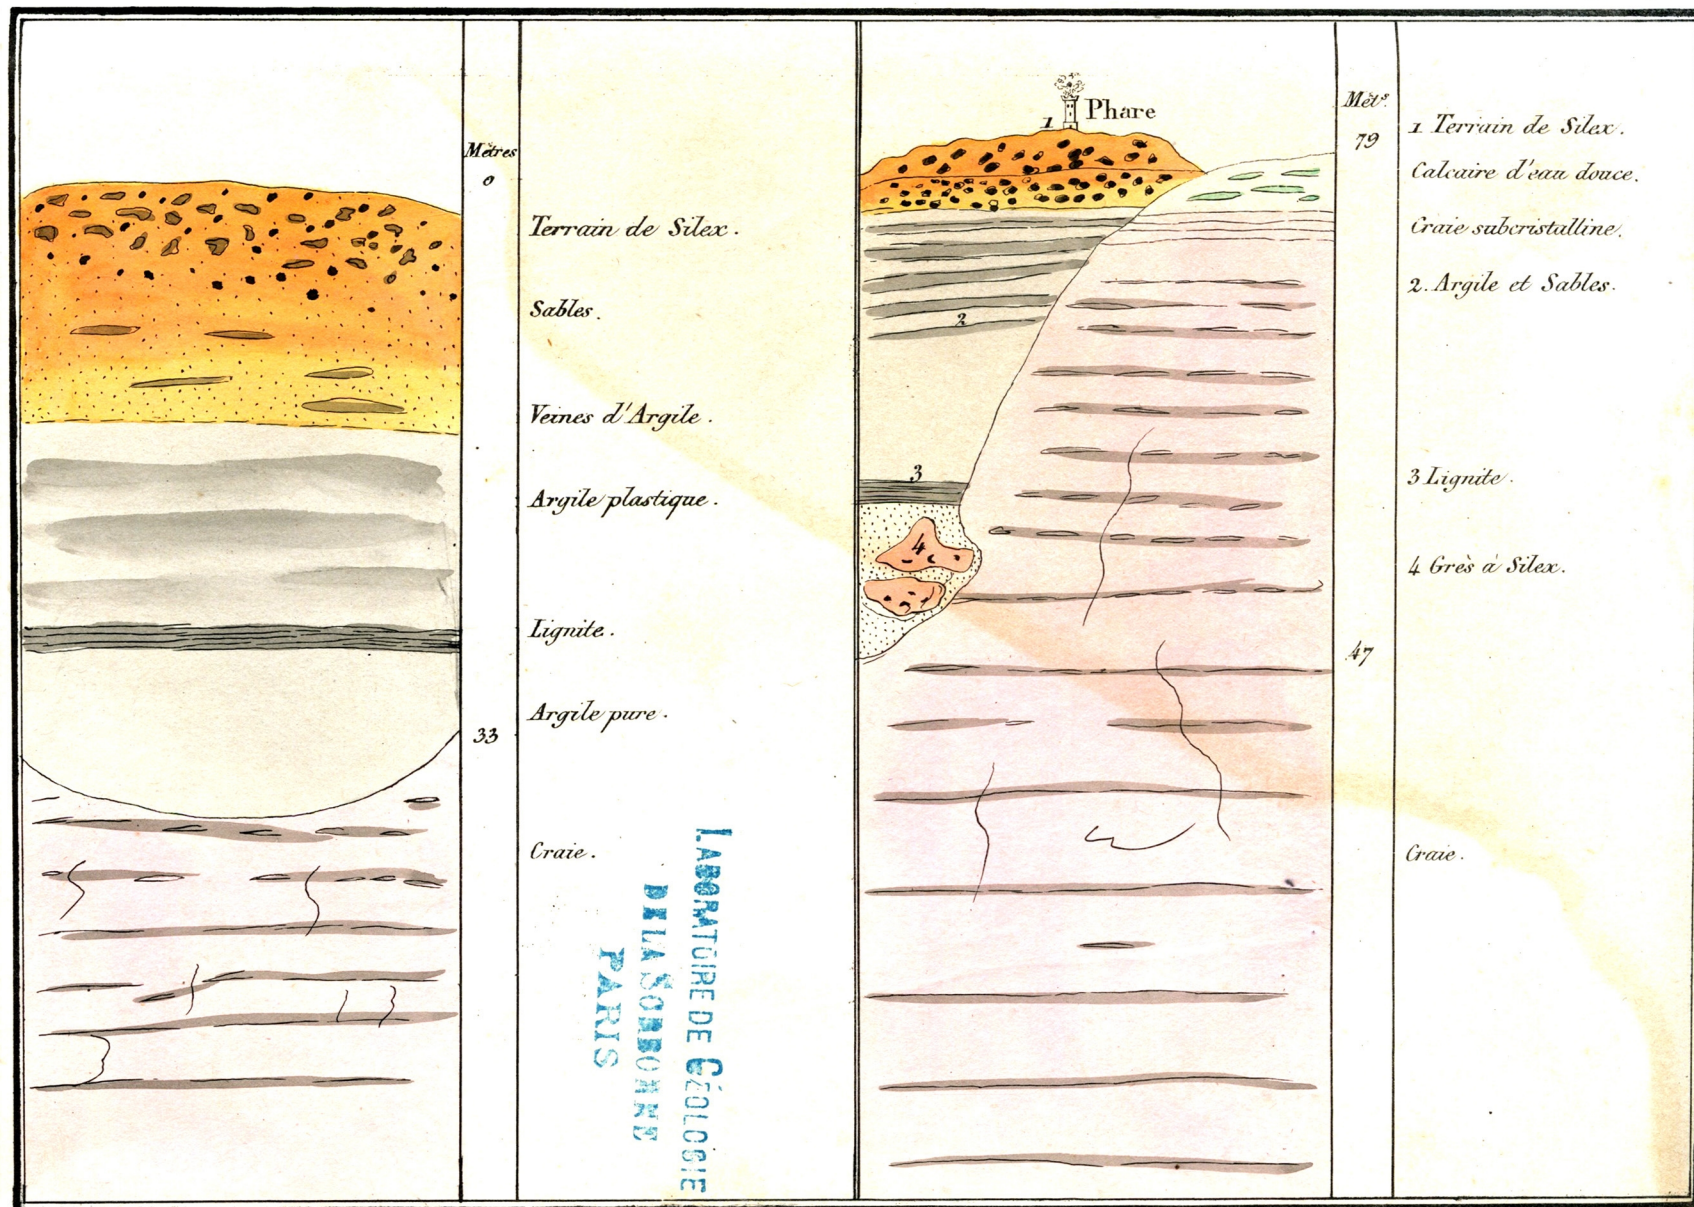 Mètres
0
Terrain de Silex.
Sables.
Veines d'Argile.
Argile plastique.
Lignite.
Argile pure.
33
Craie.
LABORATOIRE DE GÉOLOGIE
DE LA SORBONNE
PARIS
1 Phare
2
3
4
Mèts.
79
47
1 Terrain de Silex.
Calcaire d'eau douce.
Craie subcristalline.
2. Argile et Sables.
3 Lignite.
4 Grès à Silex.
Craie.